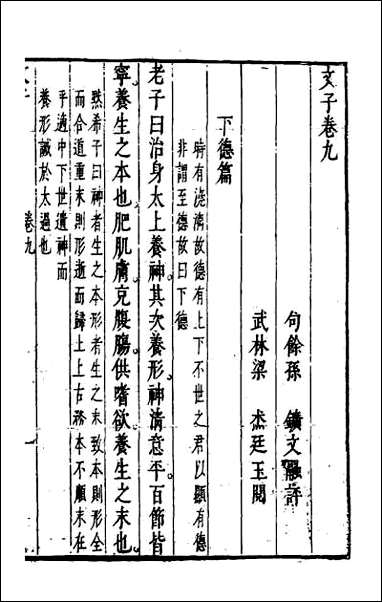 文子卷九
句餘孫　鑛文融評
武林梁　杰廷玉閱
下德篇
時有澆漓故德有上下不世之君以顯有德
非謂至德故曰下德
老子曰治身太上養神其次養形神清意平百節皆
寧養生之本也肥肌膚充腹腸供嗜欲養生之末也
默希子曰神者生之本形者生之末致本則形全
而合道重末則形逝而歸土上古務本不顧末在
乎適中下世遺神而
養形誠於太過也
卷九